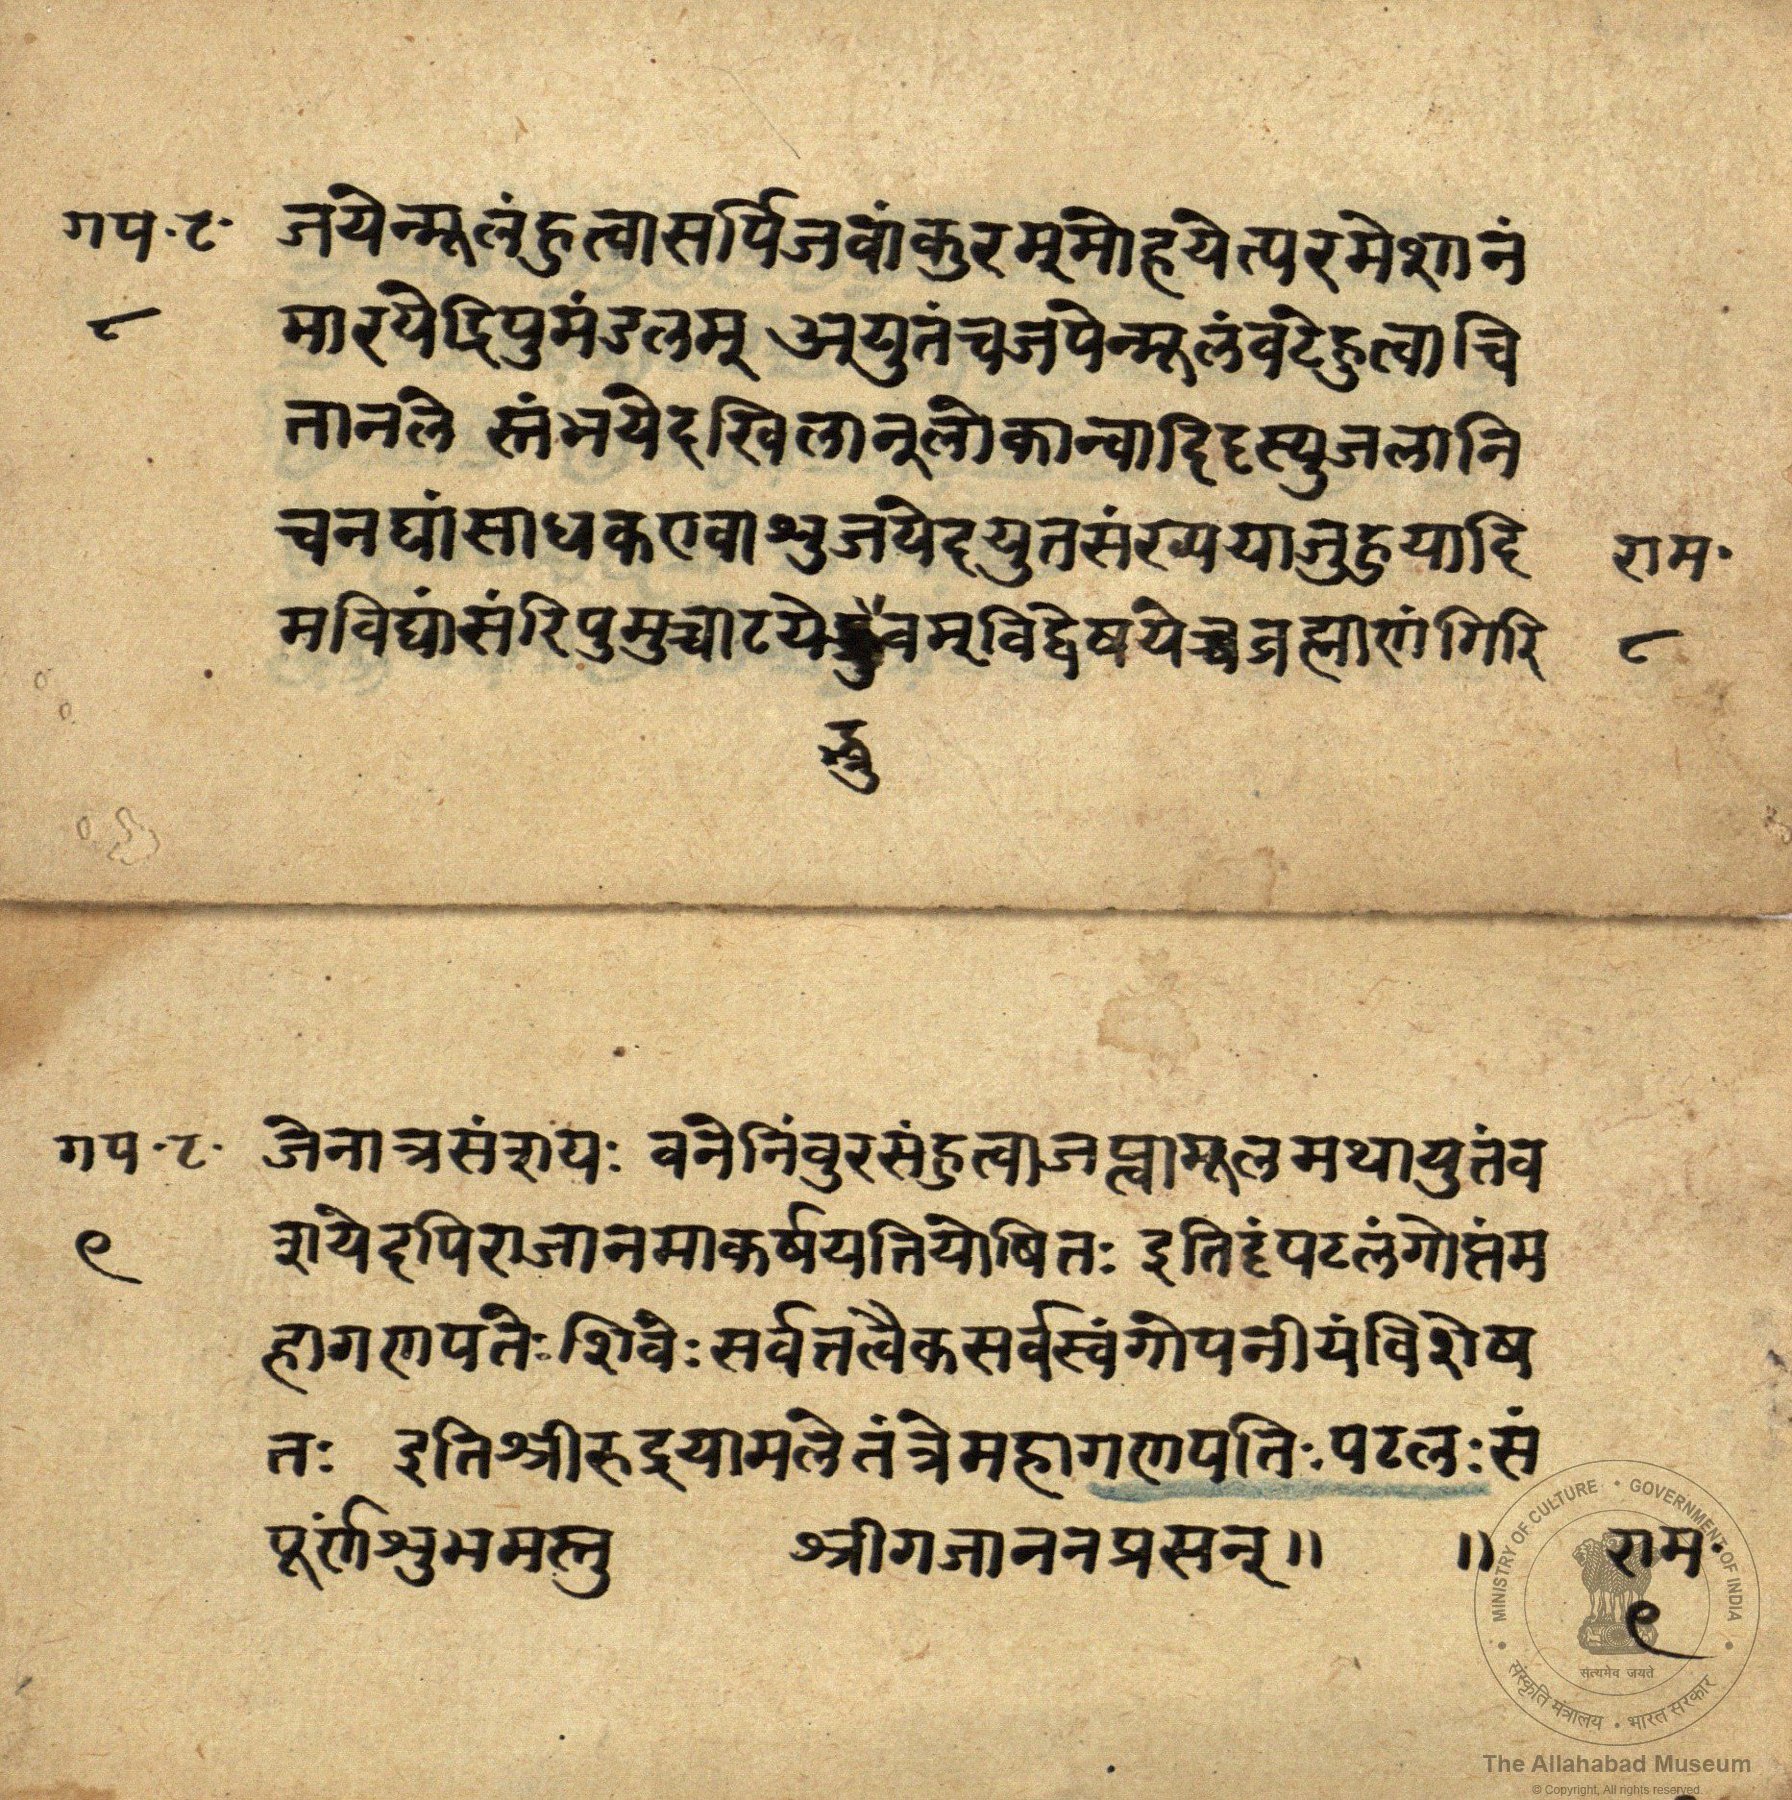 गप.ट. जयेन्मूलंहुत्वासर्पिजवांकुरम्मोहयेत्परमेशानं
८ मारयेद्रिपुमंडलम् अयुतंचजपेन्मूलंवटेहुत्वाचि
तानले स्तंभयेदखिलान्लोकान्वादिदस्युजलानि
चनद्यांसाधकएवाशुजयेदयुतसंख्ययाजुहुयाद्दि राम.
मविद्यांसंरिपुमुच्चाटयेद्ध्रुवम्विद्वेषयेच्चब्रह्माणंगिरि ८
द्ध्रु
गप.ट. जेनात्रसंशयः वनेनिंवुरसंहुत्वाजप्त्वामूलमथायुतंव
९ शयेदपिराजानमाकर्षयतियोषितः इतिदंपटलंगोप्तंम
हागणपतेः शिवेः सर्वतत्वैकसर्वस्वंगोपनीयंविशेष
तः इतिश्रीरुद्रयामलेतंत्रेमहागणपतिः पटलः सं
पूर्णंशुभमस्तु श्रीगजाननप्रसन्न्॥ ॥ राम.
९
MINISTRY OF CULTURE • GOVERNMENT OF INDIA
सत्यमेव जयते
संस्कृति मंत्रालय • भारत सरकार
The Allahabad Museum
© Copyright, All rights reserved.